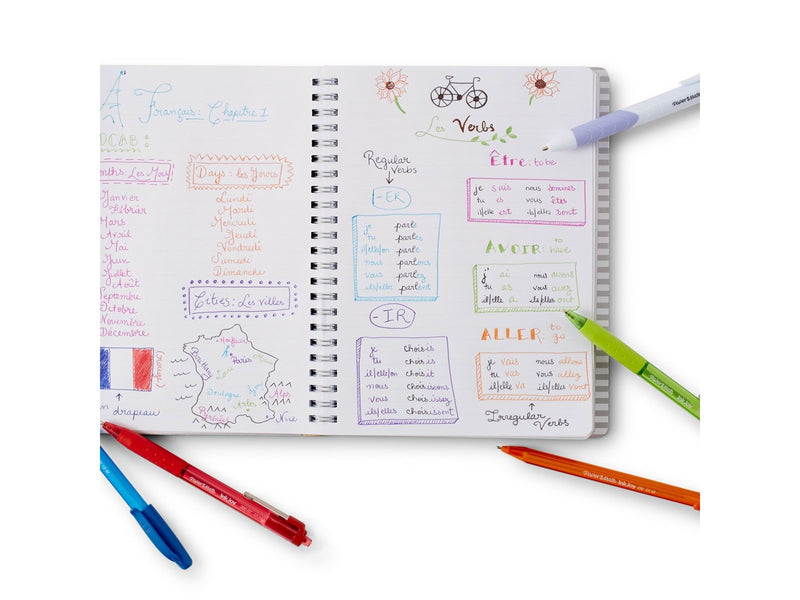 Français: Chapitre 1
OCAB:
onths: Les Mois
Janvier
Mars
Avril
Mai
Juin
Juillet
Août
Septembu
Octobre
Novembre
Décembre
Days: les Jours
Lundi
Mardi
Mercredi
Jeudi
Vendredi
Samedi
Dimanche
Cities: Les villes
Honfleur
Paris
Loire
Alps
Arles
Nice
n drapeau
Les Verbs
Regular
Verbs
-ER
je parle
tu parles
il/elle/on parle
nous parlons
vous parlez
ils/elles parlent
-IR
je choisis
tu choisis
il/elle/on choisit
nous choisissons
vous choisissez
ils/elles choisissent
Être: to be
je suis nous sommes
tu es vous êtes
il/elle est ils/elles sont
AVOIR: to have
j' ai nous avons
tu as vous avez
il/elle a ils/elles ont
ALLER: to go
je vais nous allons
tu vas vous allez
il/elle va ils/elles vont
Irregular Verbs
Paper Mate
Paper Mate InkJoy
Paper Mate InkJoy
Paper Mate InkJoy